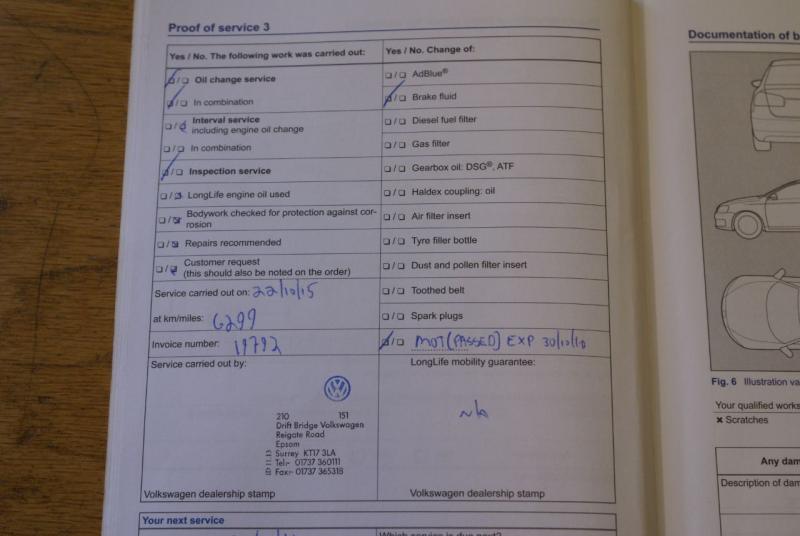 Proof of service 3
Yes / No. The following work was carried out:
Oil change service
In combination
Interval service
including engine oil change
In combination
Inspection service
LongLife engine oil used
Bodywork checked for protection against cor-
rosion
Repairs recommended
Customer request
(this should also be noted on the order)
Service carried out on: 22/10/15
at km/miles: 6299
Invoice number: 19792
Service carried out by:
210 151
Drift Bridge Volkswagen
Reigate Road
Epsom
Surrey KT17 3LA
Tel:- 01737 360111
Fax:- 01737 365318
Volkswagen dealership stamp
Yes / No. Change of:
AdBlue®
Brake fluid
Diesel fuel filter
Gas filter
Gearbox oil: DSG®, ATF
Haldex coupling: oil
Air filter insert
Tyre filler bottle
Dust and pollen filter insert
Toothed belt
Spark plugs
MOT (PASSED) EXP 30/10/16
LongLife mobility guarantee:
n/a
Volkswagen dealership stamp
Your next service
Which service is due next?
Documentation of b
Fig. 6 Illustration va
Your qualified works
× Scratches
Any dam
Description of dam